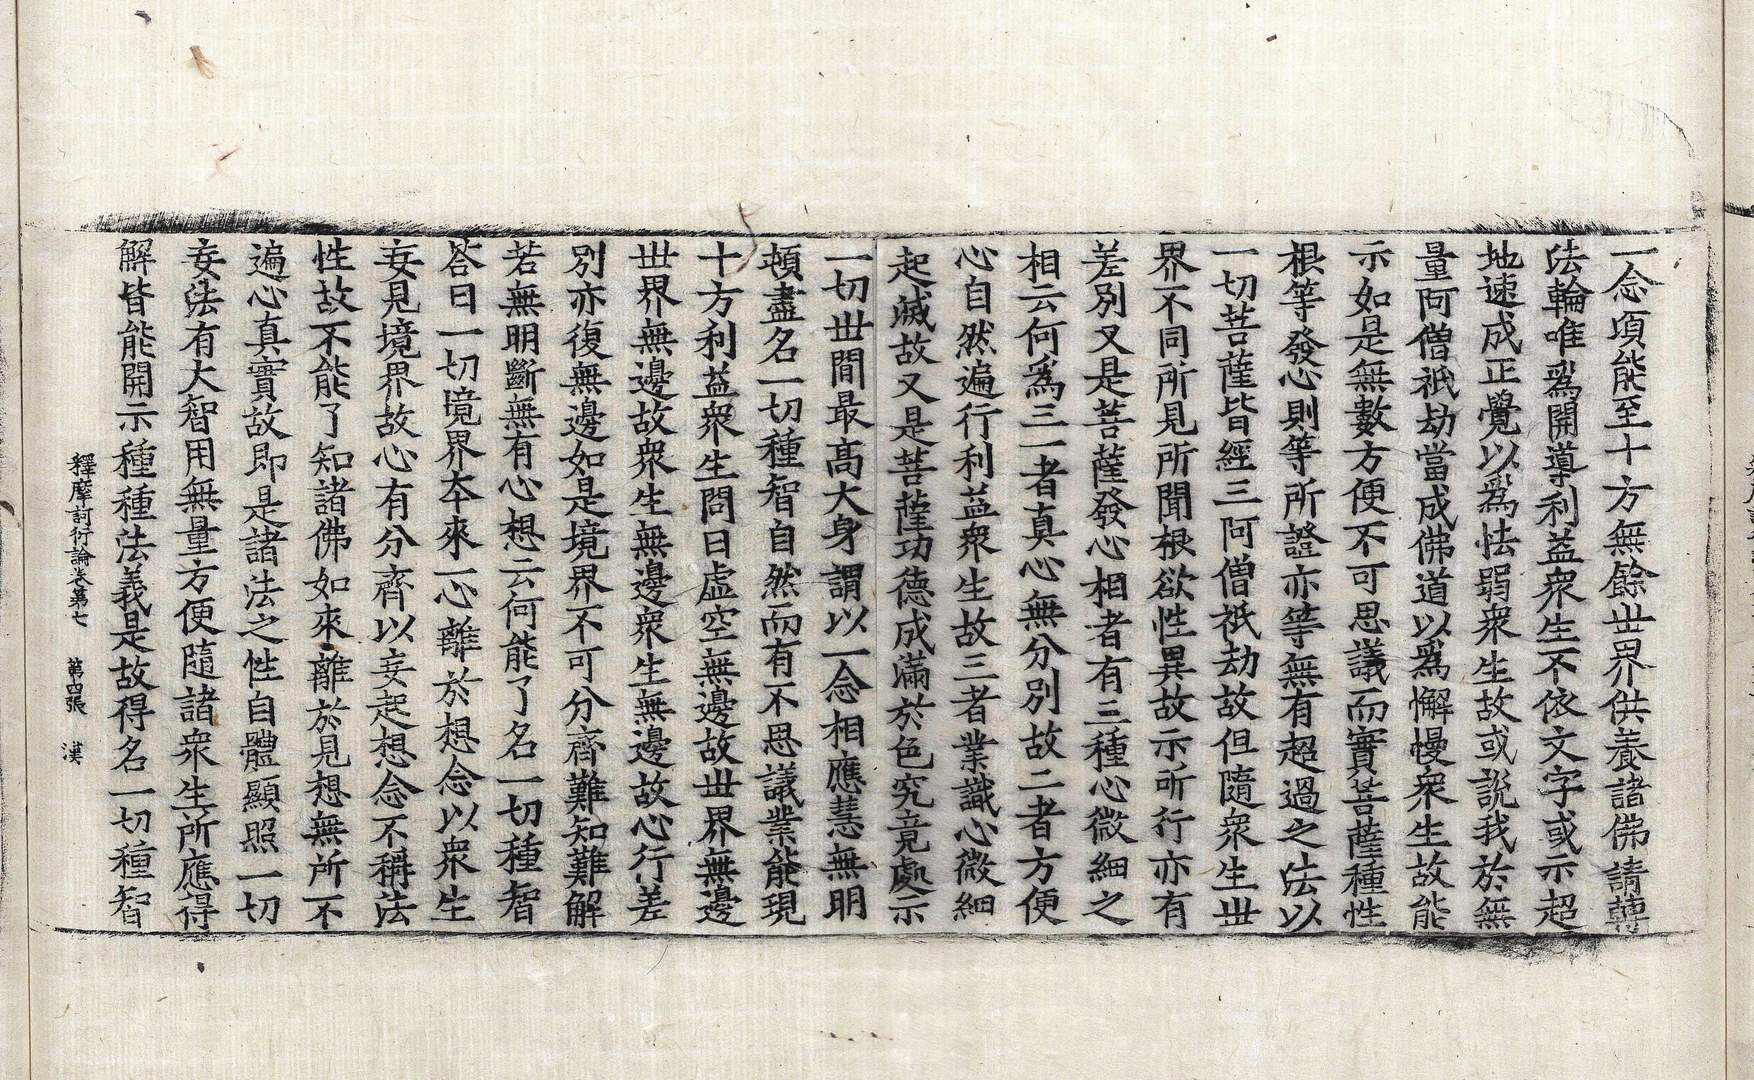 一念頃能至十方無餘世界供養諸佛請轉
法輪唯爲開導利益衆生不依文字或示超
地速成正覺以爲怯弱衆生故或說我於無
量阿僧祇劫當成佛道以爲懈慢衆生故能
示如是無數方便不可思議而實菩薩種性
根等發心則等所證亦等無有超過之法以
一切菩薩皆經三阿僧祇劫故但隨衆生世
界不同所見所聞根欲性異故示所行亦有
差別又是菩薩發心相者有三種心微細之
相云何爲三一者真心無分別故二者方便
心自然遍行利益衆生故三者業識心微細
起滅故又是菩薩功德成滿於色究竟處示
一切世間最高大身謂以一念相應慧無明
頓盡名一切種智自然而有不思議業能現
十方利益衆生問曰虛空無邊故世界無邊
世界無邊故衆生無邊衆生無邊故心行差
別亦復無邊如是境界不可分齊難知難解
若無明斷無有心想云何能了名一切種智
答曰一切境界本來一心離於想念以衆生
妄見境界故心有分齊以妄起想念不稱法
性故不能了知諸佛如來離於見想無所不
遍心真實故即是諸法之性自體顯照一切
妄法有大智用無量方便隨諸衆生所應得
解皆能開示種種法義是故得名一切種智
釋摩訶衍論卷第七 第四張 漢